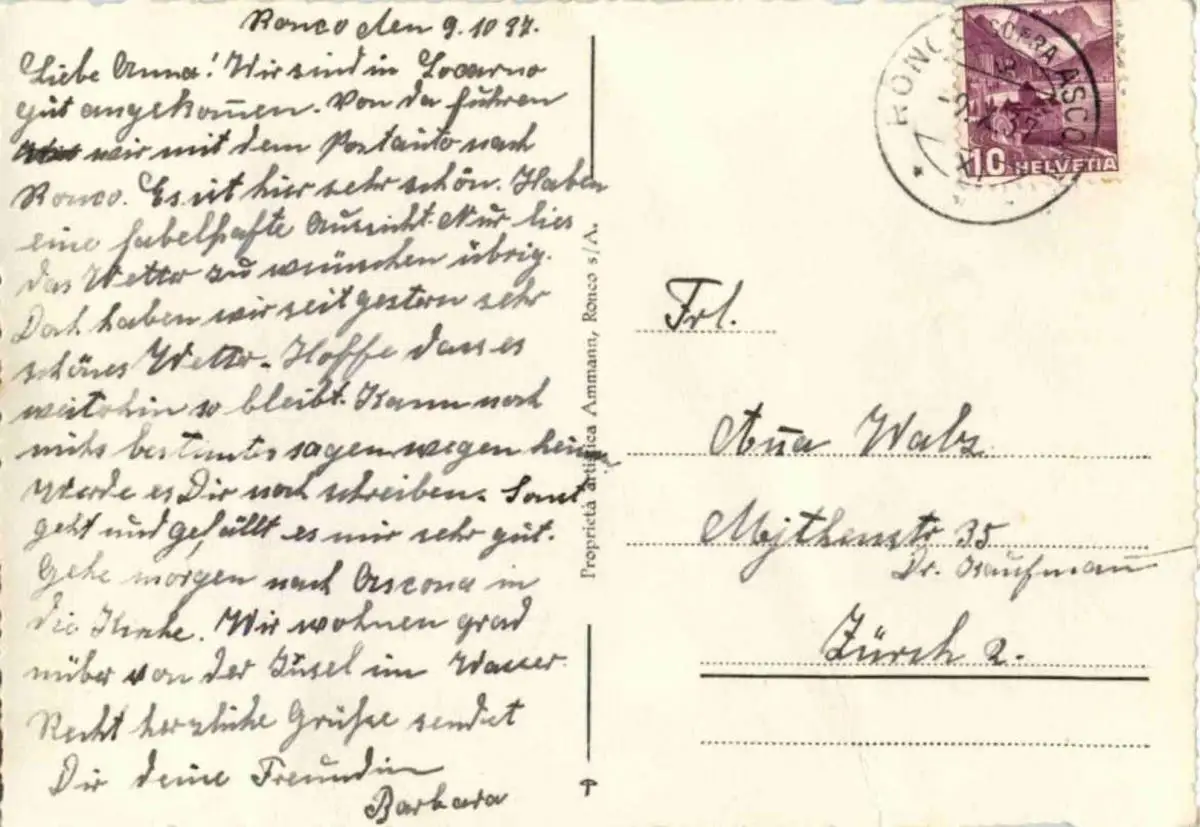 Ronco den 9.10 37.
Liebe Anna! Wir sind in Locarno
gut angekom̅en. Von da führen
wir mit dem Postauto nach
Ronco. Es ist hier sehr schön. Haben
eine fabelhafte Aussicht. Nur lies
das Wetter zu wünschen übrig.
Doch haben wir seit gestern sehr
schönes Wetter. Hoffe dass es
weiterhin so bleibt. Kann noch
nichts bestimtes sagen wegen heim
Werde es Dir noch schreiben. Sonst
geht und gefällt es mir sehr gut.
Gehe morgen nach Ascona in
die Kirche. Wir wohnen grad
nüber von der Insel im Wasser.
Recht herzliche Grüße sendet
Dir deine Freundin
Barbara
Proprietà artistica Ammann, Ronco s/A.
RONCO SOPRA ASCONA
9.X.37
10 HELVETIA
Frl.
An̅a Walz
Mythenstr 35
Dr. Kaufman̅
Zürch 2.